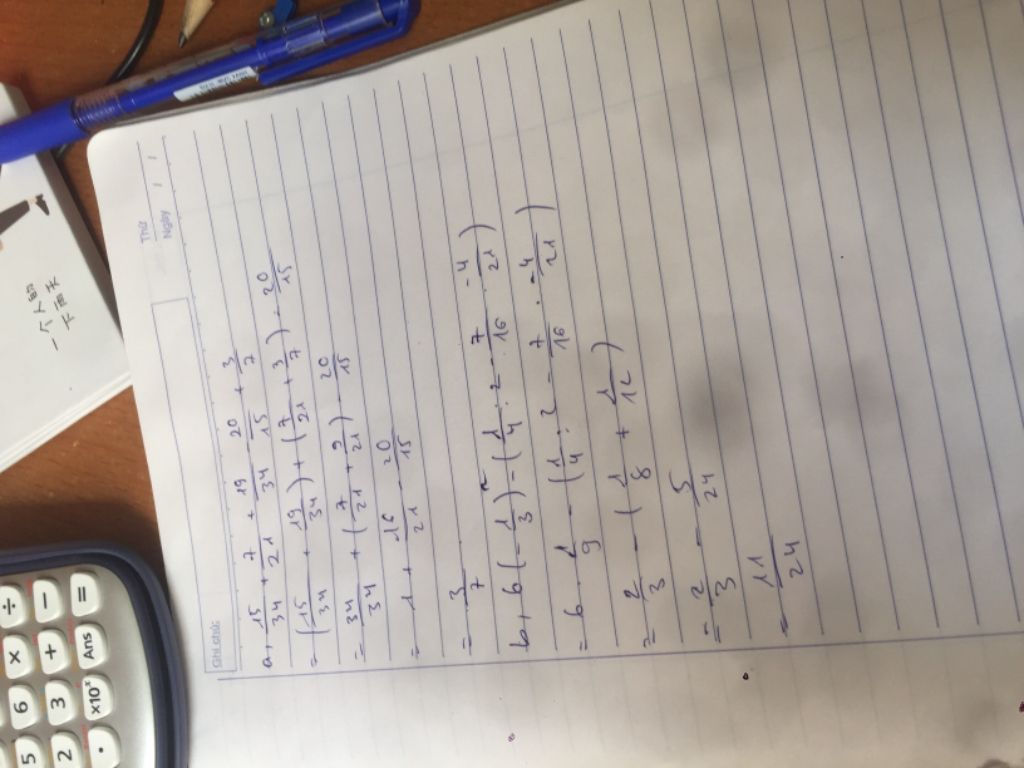 Thứ
Ngày / /
Ghi chú:
a, 15/34 + 7/21 + 19/34 - 20/15 + 3/7
= (15/34 + 19/34) + (7/21 + 3/7) - 20/15
= 34/34 + (7/21 + 9/21) - 20/15
= 1 + 16/21 - 20/15
= 3/7
b, 6(-1/3)² - (1/4 : 2 - 7/16 · -4/21)
= 6 · 1/9 - (1/4 : 2 - 7/16 · -4/21)
= 2/3 - (1/8 + 1/12)
= 2/3 - 5/24
= 11/24
一个人的
下雨天
÷ - =
× + Ans
6 3 ×10ˣ
5 2 ·